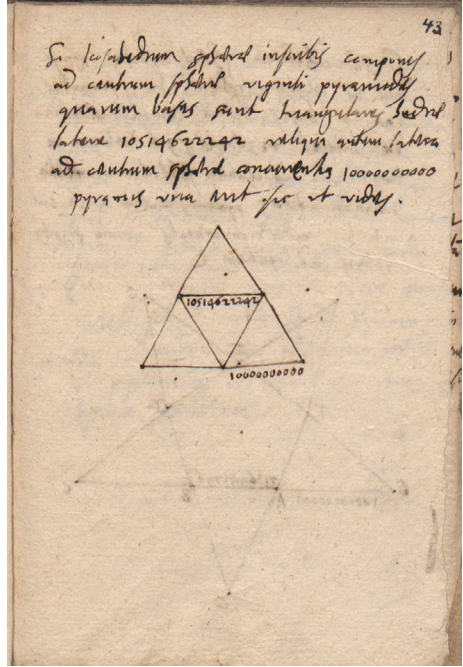 43
Si Icosahedrum sphæræ inscribis componis
ad centrum sphæræ viginti pyramides
quarum bases sunt triangulares hedræ
latere 10514622242 reliqua autem latera
ad centrum sphæræ concurrentia 10000000000
pyramis una erit sic ut vides.
10514622242
10000000000